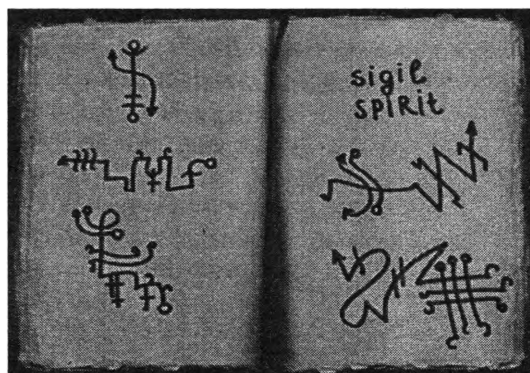 sigil
SPIRIT